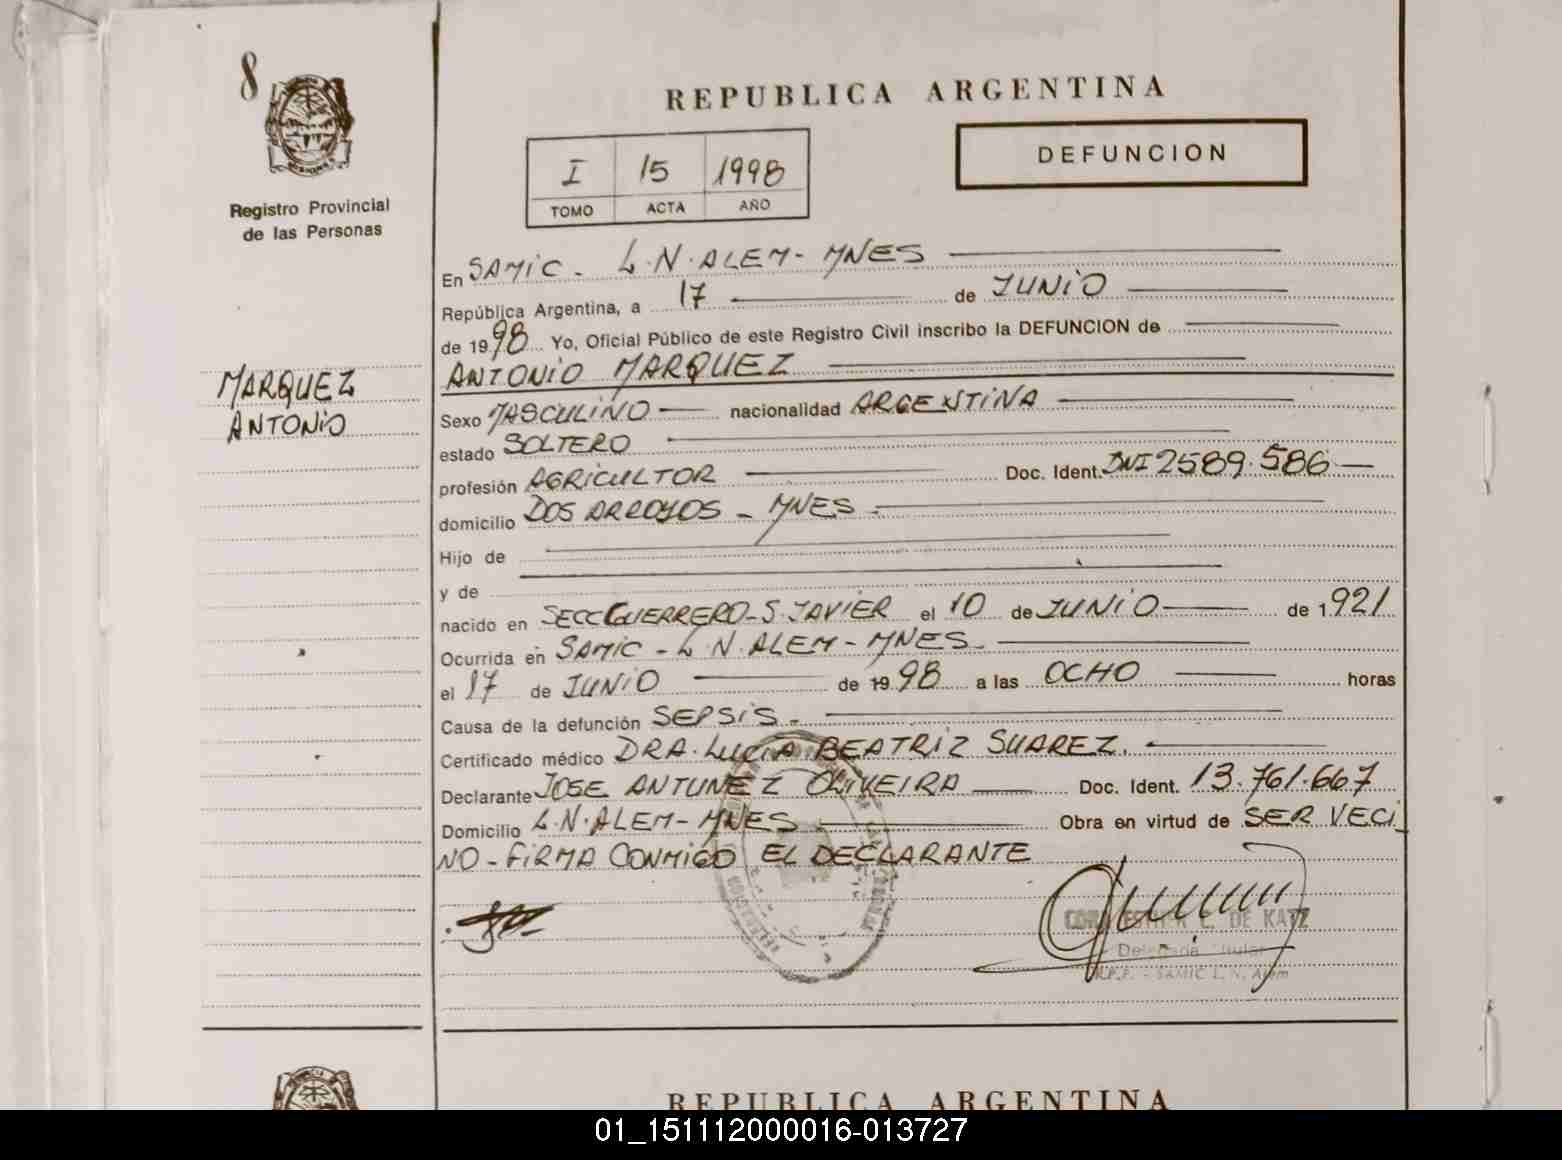 8
REPUBLICA ARGENTINA
DEFUNCION
I 15 1998
TOMO ACTA AÑO
Registro Provincial
de las Personas
MARQUEZ
ANTONIO
En SAMIC - L.N. ALEM - MNES
República Argentina, a 17 de JUNIO
de 1998 Yo, Oficial Público de este Registro Civil inscribo la DEFUNCION de
ANTONIO MARQUEZ
Sexo MASCULINO nacionalidad ARGENTINA
estado SOLTERO
profesión AGRICULTOR Doc. Ident. DNI 2589.586
domicilio DOS ARROYOS - MNES
Hijo de
y de
nacido en SECC GUERRERO - S. JAVIER el 10 de JUNIO de 1.921
Ocurrida en SAMIC - L.N. ALEM - MNES
el 17 de JUNIO de 1998 a las OCHO horas
Causa de la defunción SEPSIS -
Certificado médico DRA. LUCIA BEATRIZ SUAREZ.
Declarante JOSE ANTUNEZ OLIVEIRA Doc. Ident. 13.761.667
Domicilio L.N. ALEM - MNES Obra en virtud de SER VECI_
NO - FIRMA CONMIGO EL DECLARANTE
DE KATZ
SAMIC L. N. Alem
REPUBLICA ARGENTINA
01_151112000016-013727